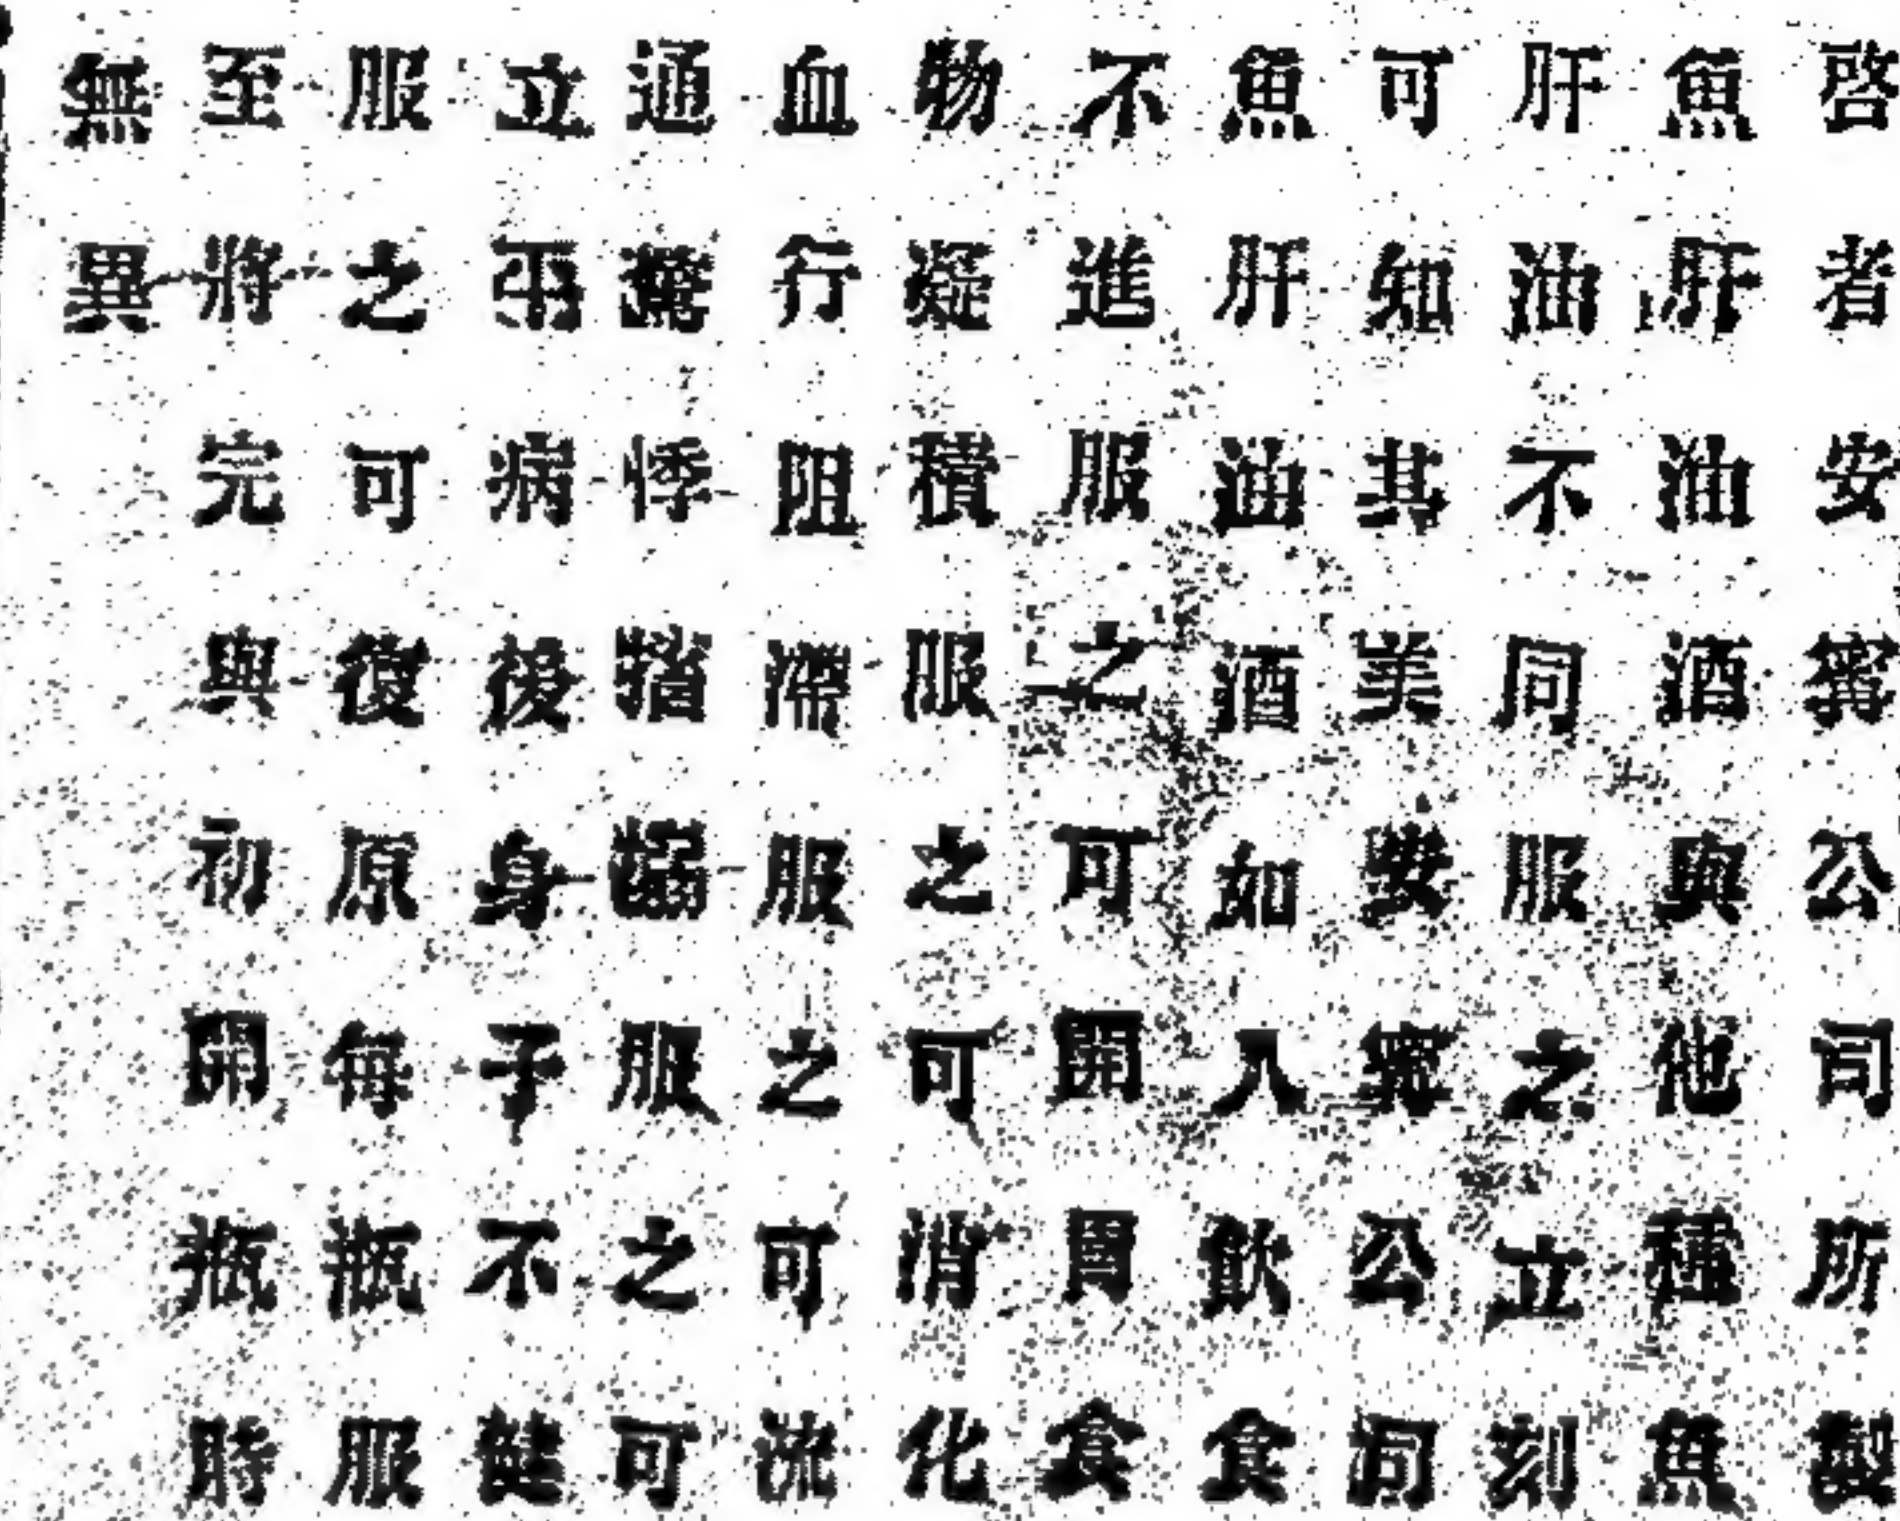 啓者安甯公司所製
魚肝油酒與他種魚
肝油不同服之立刻
可知其美安甯公司
魚肝油酒如人飲食
不進服之可開胃食
物凝積服之可消化
血行阻滯服之可流
通驚悸服之可
立弱病後身子不健
服之可復原每瓶服
至將完與初開瓶時
無異